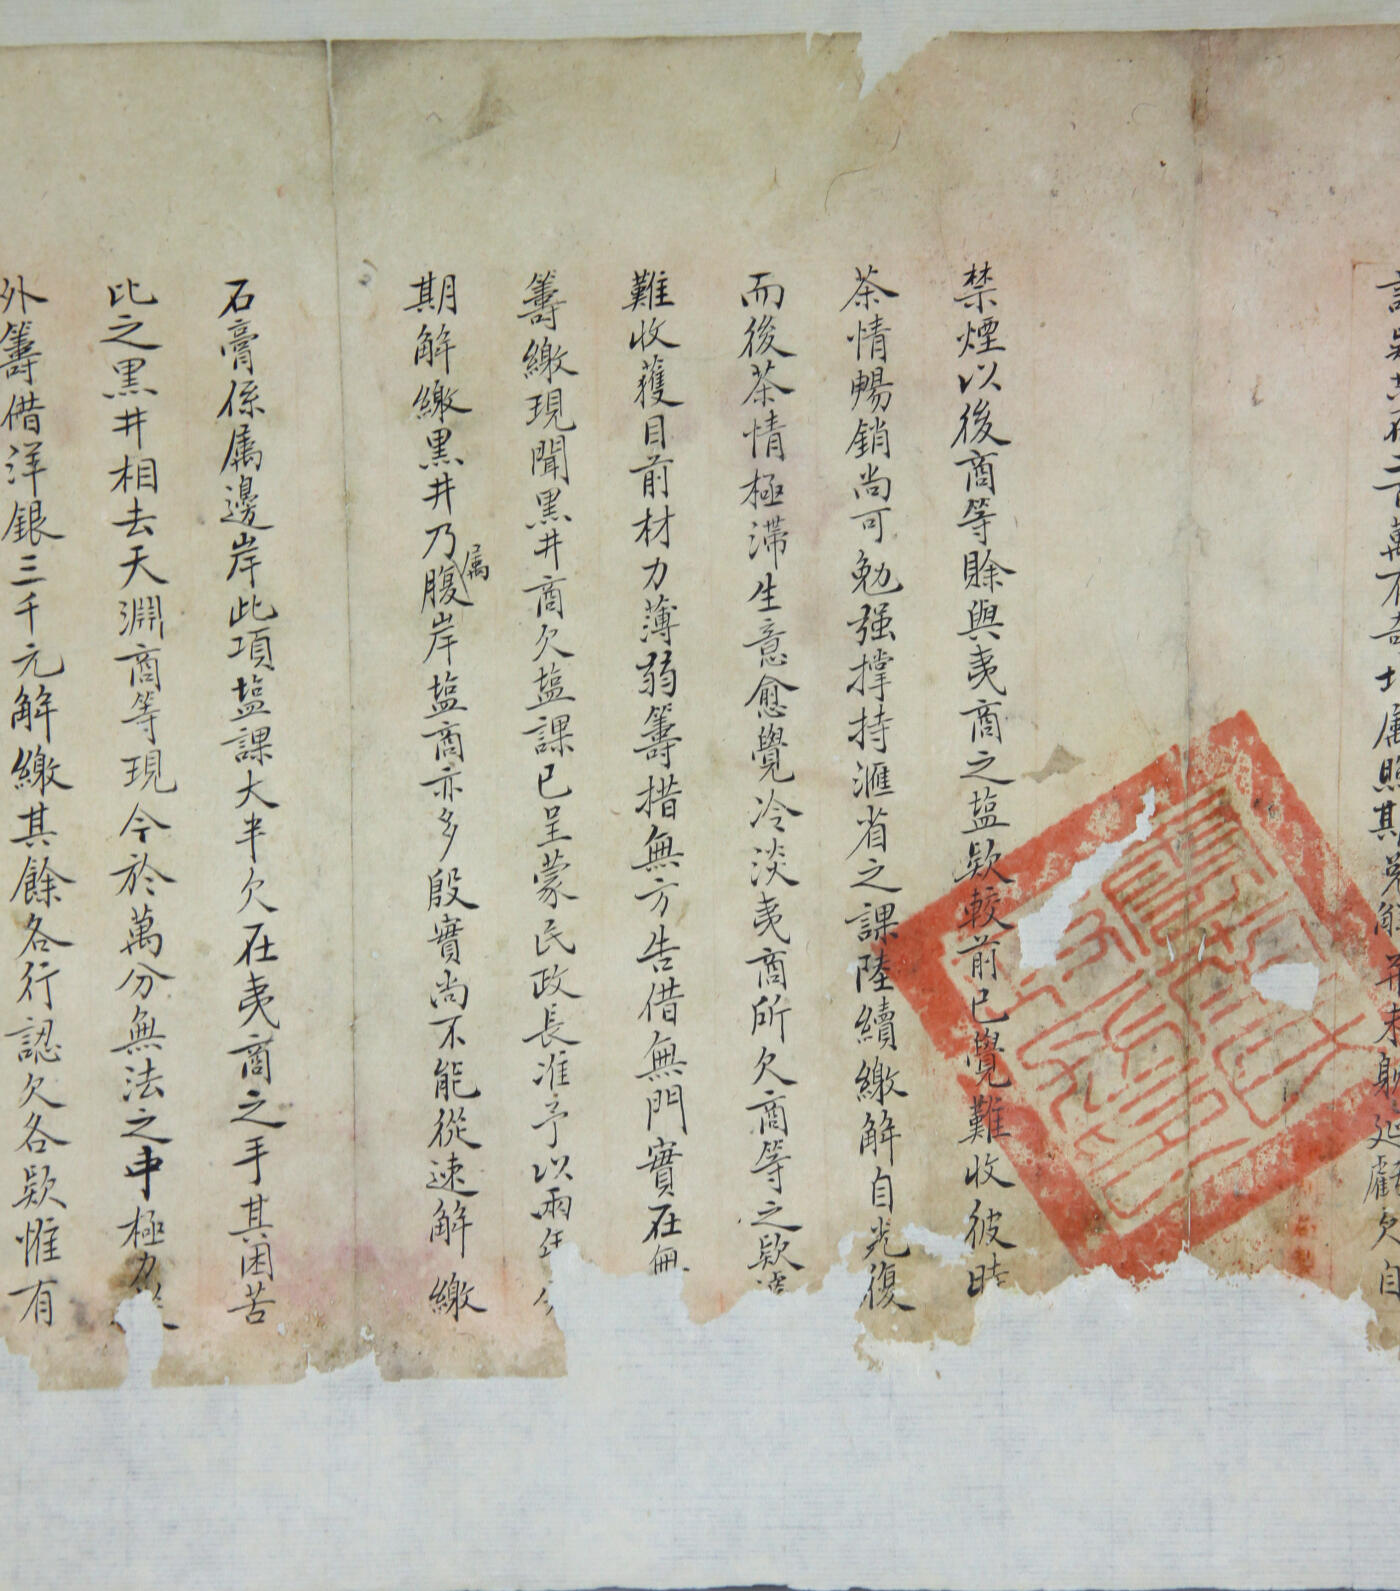 照其
並未
延虧欠自
禁煙以後商等賒與夷商之塩欵較前已覺難收彼時
茶情暢銷尚可勉强撑持滙省之課陸續繳解自光復
而後茶情極滯生意愈覺冷淡夷商所欠商等之欵
難收獲目前材力薄弱籌措無方告借無門實在無
籌繳現聞黑井商欠塩課已呈蒙民政長准予以兩年
期解繳黑井乃属腹岸塩商亦多殷實尚不能從速解繳
石膏係属邊岸此項塩課大半欠在夷商之手其困苦
比之黑井相去天淵商等現今於萬分無法之中極力
外籌借洋銀三千元解繳其餘各行認欠各欵惟有